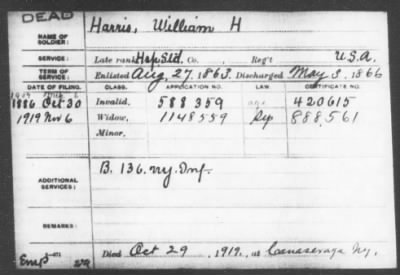 DEAD
NAME OF SOLDIER: Harris, William H
SERVICE: Late rank Hsp Std, Co. Reg't U.S.A.
TERM OF SERVICE: Enlisted Aug. 27. 1863. Discharged May 3, 1866
DATE OF FILING. CLASS. APPLICATION NO. LAW CERTIFICATE NO.
1886 Oct 30 Invalid, 588359 age 420615
1919 Nov 6 Widow, 1148559 Sep 888,561
Minor,
ADDITIONAL SERVICES: B. 136. NY. Inf.
REMARKS:
Died Oct 29, 1919, at Canaseraga Ny.